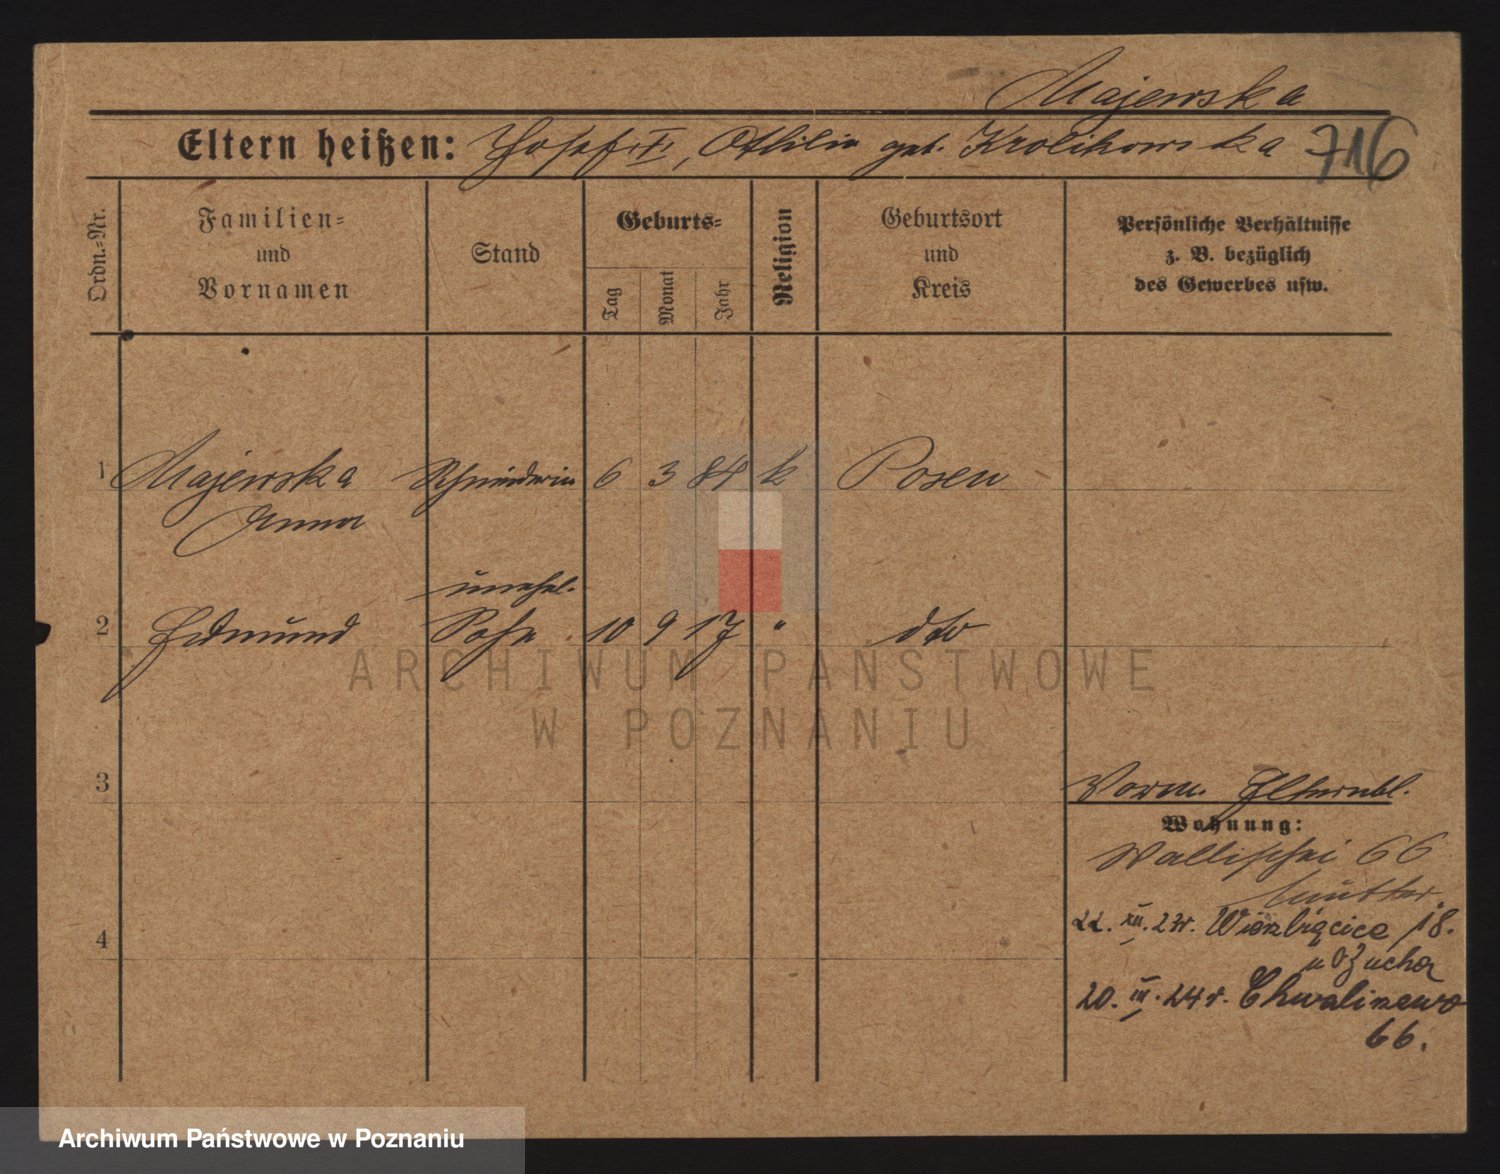 Majewska
Eltern heißen: Josef †, Othilie geb. Krolikowska 716
Ordn.-Nr.
Familien-
und
Vornamen
Stand
Geburts-
Tag
Monat
Jahr
Religion
Geburtsort
und
Kreis
Persönliche Verhältnisse
z. B. bezüglich
des Gewerbes usw.
1 Majewska Schneiderin 6 3 84 k Posen
Anna
unehel.
2 Edmund Sohn 10 9 17 " dto
ARCHIWUM PAŃSTWOWE
W POZNANIU
3
Vorm. Elternbl.
Wohnung:
Wallischei 66
Mutter.
22. XII. 23r. Wierzbięcice 18.
4
20. III. 24 r. Chwaliszewo
66.
Archiwum Państwowe w Poznaniu